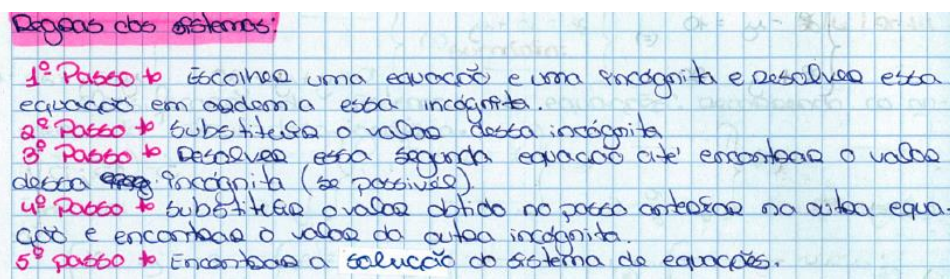 Regras dos sistemas:
1º Passo → Escolher uma equacção e uma incógnita e Resolver essa
equacção em ordem a essa incógnita.
2º Passo → Substituir o valor dessa incógnita
3º Passo → Resolver essa segunda equacção até encontrar o valor
dessa incógnita (se possível).
4º Passo → Substituir o valor obtido no passo anterior na outra equa
cção e encontrar o valor da outra incógnita.
5º passo → Encontrar a solucção do sistema de equacções.